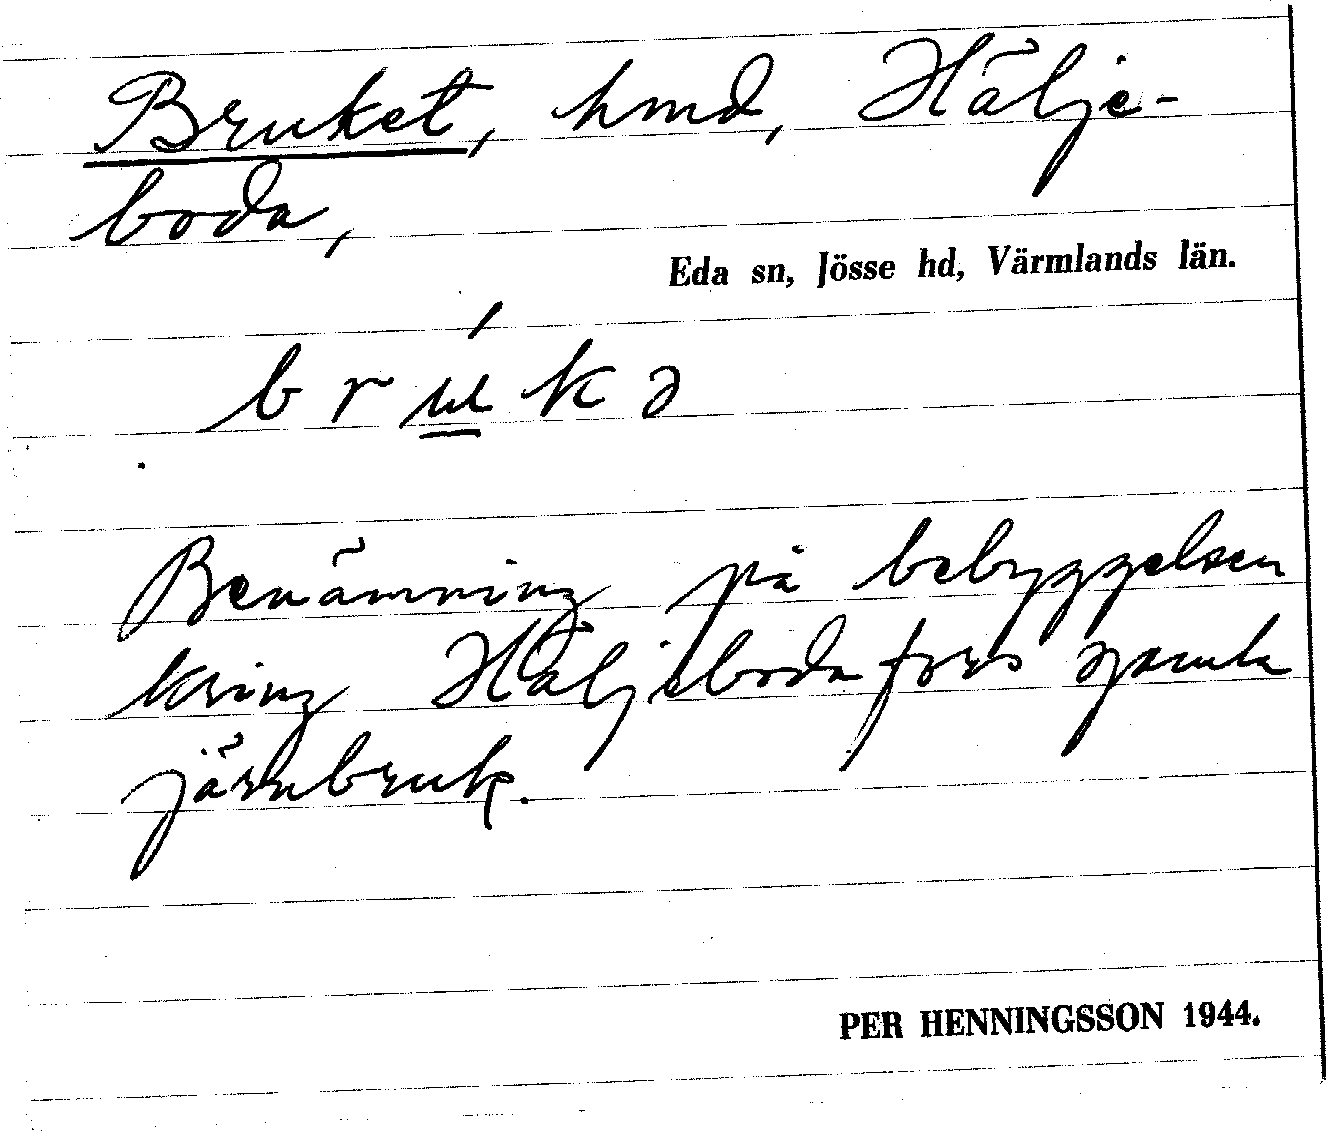 Bruket, hmd, Hälje-
boda,
Eda sn, Jösse hd, Värmlands län.
b r ú k ə
Benämning på bebyggelsen
kring Häljebodafors gamla
järnbruk.
PER HENNINGSSON 1944.